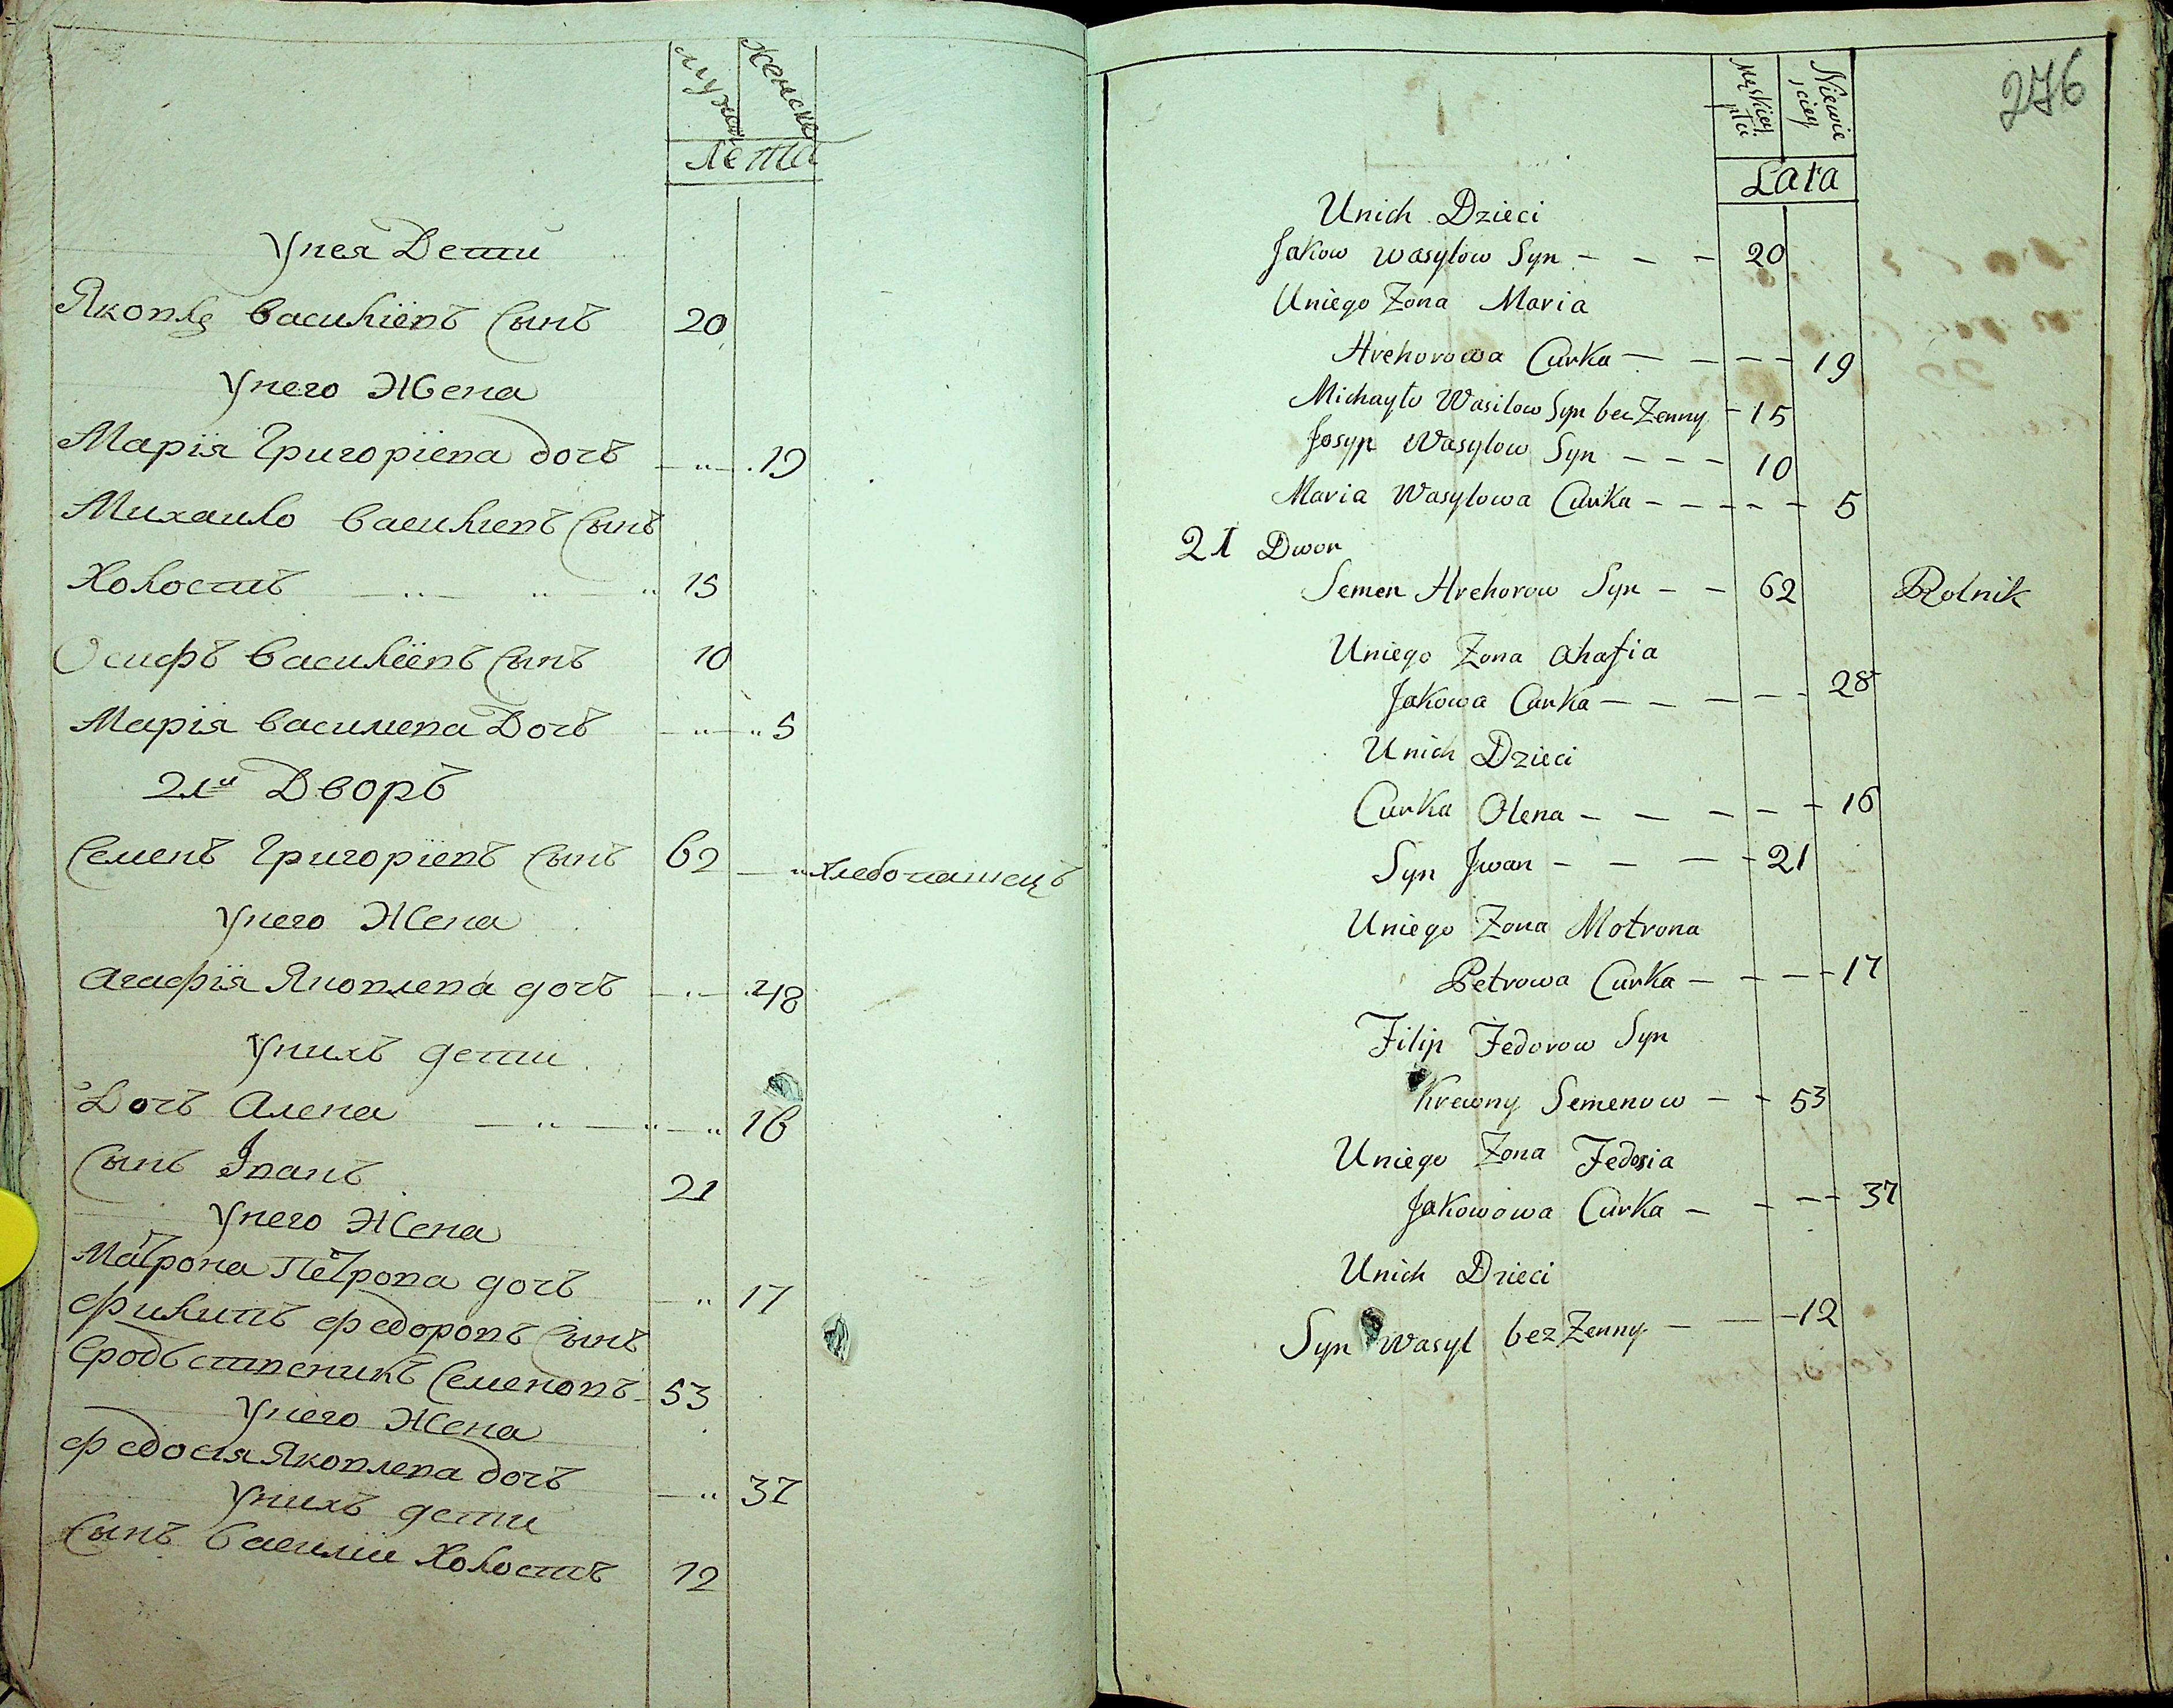 мужеск женска
Лета
У нея Дети
Яковль Василіевъ Сынъ 20
У него Жена
Марія Григоріева дочъ 19
Михаило Василиевъ Сынъ
Холостъ 15
Осифъ Василіевъ Сынъ 10
Марія Василиева Дочъ 5
21й Дворъ
Семенъ Григоріевъ Сынъ 62 хлебопашецъ
У него Жена
Агафія Яковлева дочъ 28
У нихъ дети
Дочъ Алена 16
Сынъ Іванъ 21
У него Жена
Матрона Петрова дочъ 17
Филипъ Федоровъ Сынъ
Сродственикъ Семеновъ 53
У него Жена
Федосія Яковлева дочъ 37
У нихъ дети
Сынъ Василии Холостъ 12
276
Męskiey płci Niewieściey
Lata
Unich Dzieci
Jakow Wasylow Syn - - - 20
Uniego Zona Maria
Hrehorowa Curka - - - - 19
Michayło Wasilow Syn bez Zenny - 15
Josyp Wasylow Syn - - - 10
Maria Wasylowa Curka - - - - - 5
21 Dwor
Semen Hrehorow Syn - - 62 Rolnik
Uniego Zona Ahafia
Jakowa Curka - - - - - 28
Unich Dzieci
Curka Olena - - - - - 16
Syn Jwan - - - - 21
Uniego Zona Motrona
Petrowa Curka - - - - 17
Filip Fedorow Syn
Krewny Semenow - - 53
Uniego Zona Fedosia
Jakowowa Curka - - - - 37
Unich Dzieci
Syn Wasyl bez Zenny - - - 12